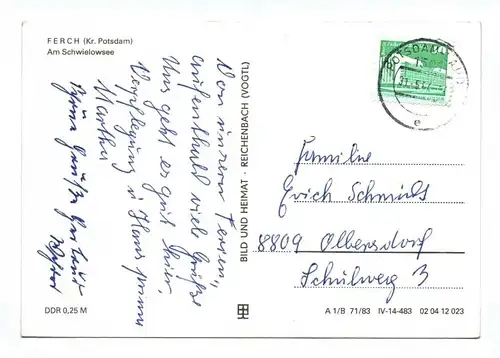 FERCH (Kr. Potsdam)
Am Schwielowsee
Von unserem Ferien-
aufenthalt viele Grüße
Uns geht es gut hier,
Verpflegung u. Haus prima
Martha
Grüße
BILD UND HEIMAT · REICHENBACH (VOGTL)
POTSDAM
Familie
Erich Schmidt
8809 Olbersdorf
Schulweg 3
DDR 0,25 M
A 1/B 71/83 IV-14-483 02 04 12 023